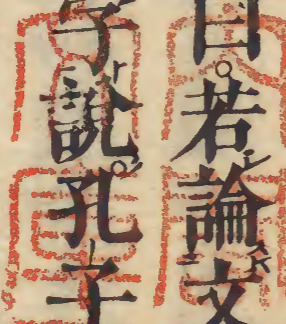 曰若論文
子說孔子